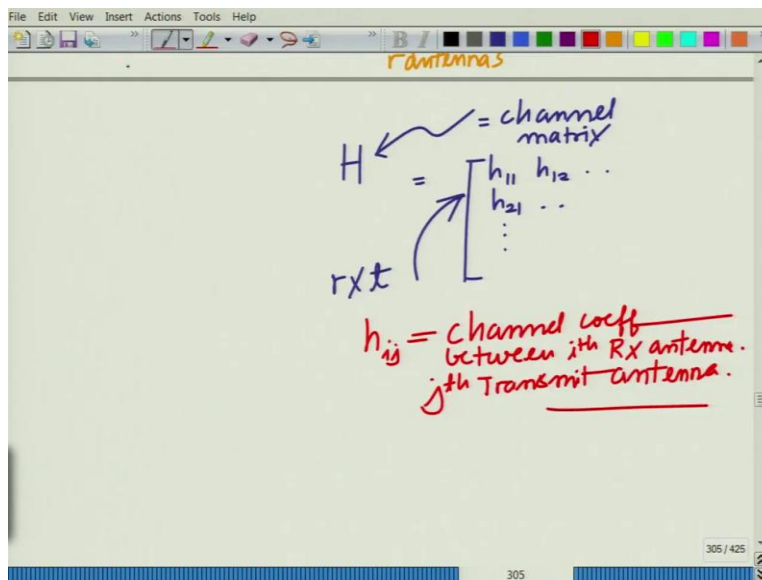 File Edit View Insert Actions Tools Help
B I
r antennas
H = channel
matrix
= [ h₁₁ h₁₂ . .
h₂₁ . .
⋮
r×t
hᵢⱼ = channel coeff
between ith Rx antenna.
jth Transmit antenna.
305 / 425
305